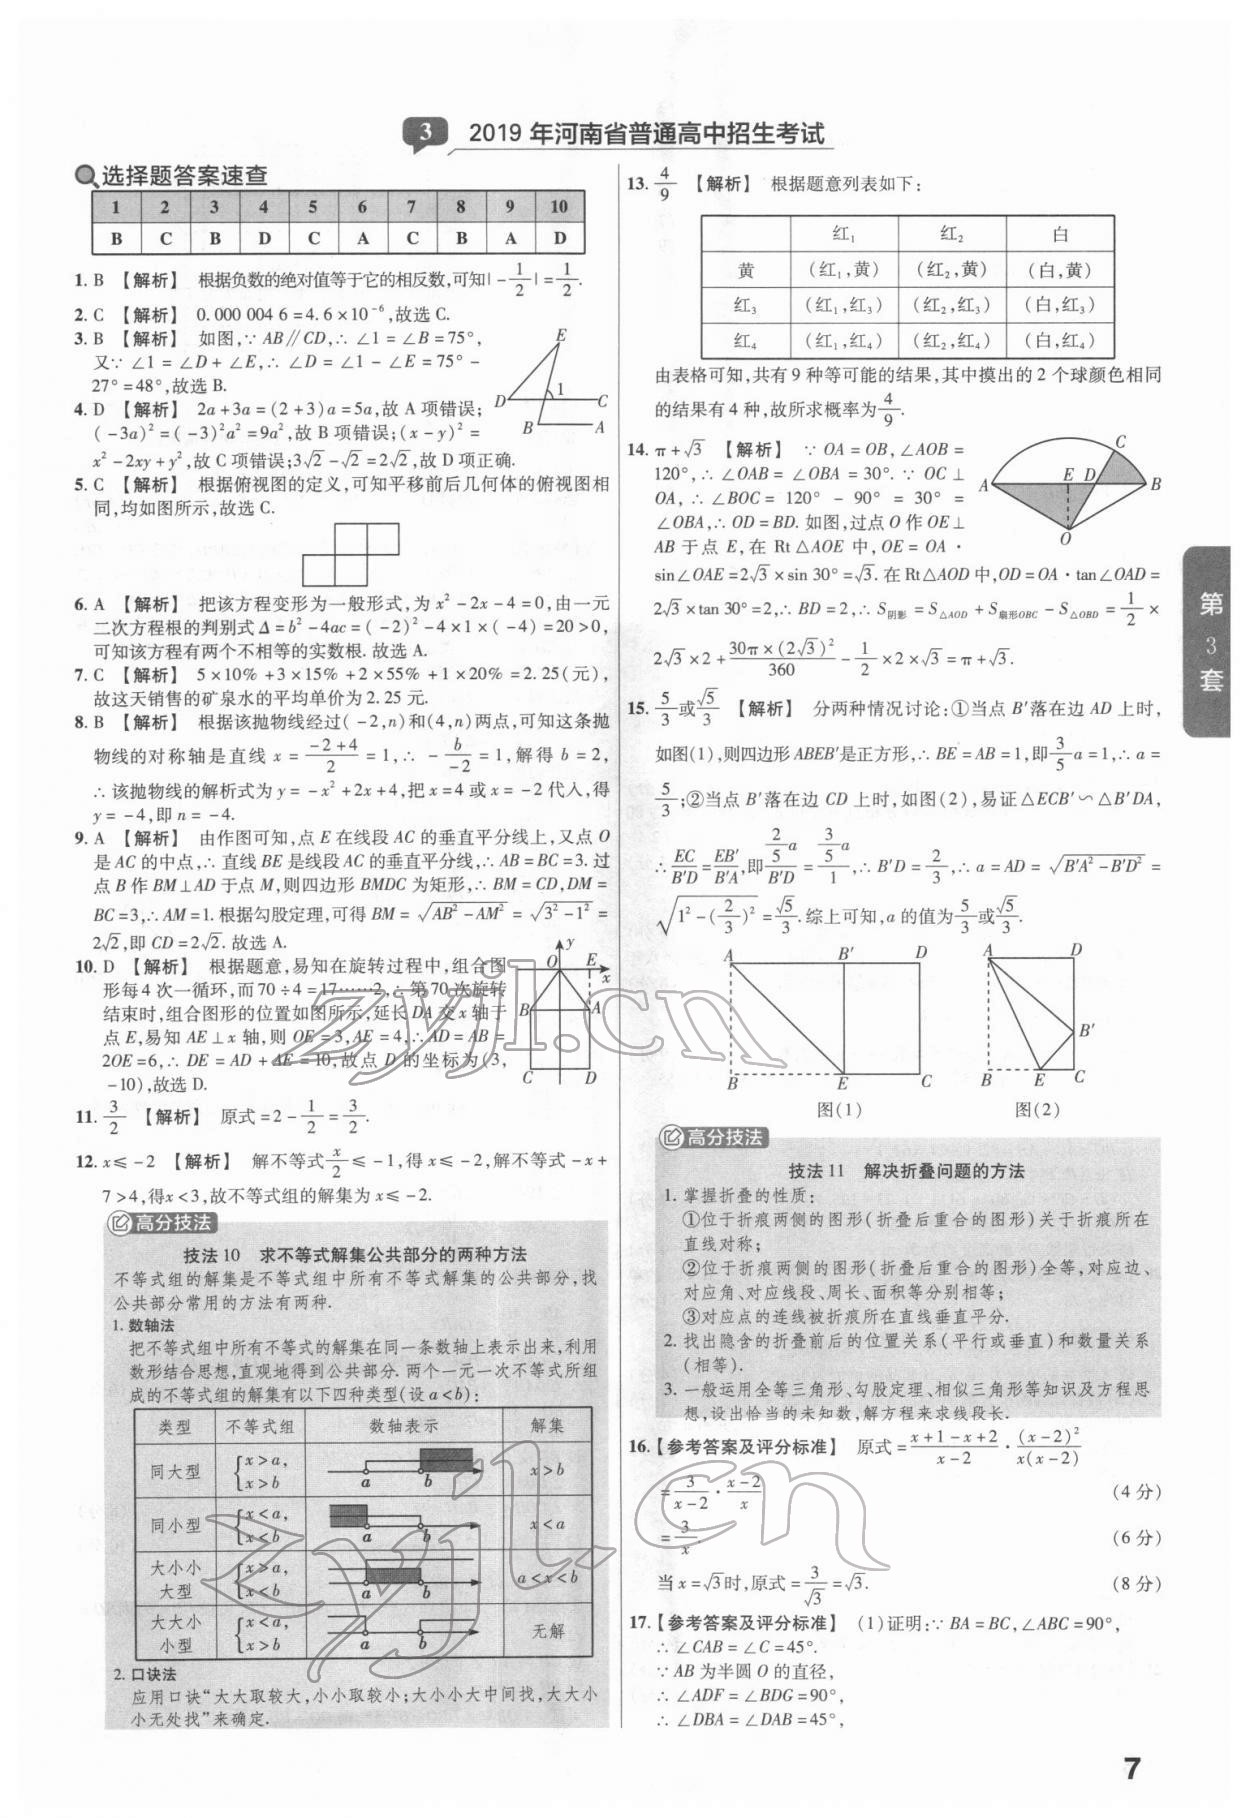 3 2019 年河南省普通高中招生考试
选择题答案速查
1 2 3 4 5 6 7 8 9 10
B C B D C A C B A D
1. B 【解析】 根据负数的绝对值等于它的相反数,可知|-1/2|=1/2.
2. C 【解析】 0.000 004 6=4.6×10⁻⁶,故选 C.
3. B 【解析】 如图,∵ AB∥CD,∴ ∠1=∠B=75°,
又∵ ∠1=∠D+∠E,∴ ∠D=∠1-∠E=75°-
27°=48°,故选 B.
E
D 1 C
B A
4. D 【解析】 2a+3a=(2+3)a=5a,故 A 项错误;
(-3a)²=(-3)²a²=9a²,故 B 项错误;(x-y)²=
x²-2xy+y²,故 C 项错误;3√2-√2=2√2,故 D 项正确.
5. C 【解析】 根据俯视图的定义,可知平移前后几何体的俯视图相
同,均如图所示,故选 C.
6. A 【解析】 把该方程变形为一般形式,为 x²-2x-4=0,由一元
二次方程根的判别式 Δ=b²-4ac=(-2)²-4×1×(-4)=20>0,
可知该方程有两个不相等的实数根. 故选 A.
7. C 【解析】 5×10%+3×15%+2×55%+1×20%=2.25(元),
故这天销售的矿泉水的平均单价为 2.25 元.
8. B 【解析】 根据该抛物线经过(-2,n)和(4,n)两点,可知这条抛
物线的对称轴是直线 x=(-2+4)/2=1,∴ -b/-2=1,解得 b=2,
∴ 该抛物线的解析式为 y=-x²+2x+4,把 x=4 或 x=-2 代入,得
y=-4,即 n=-4.
9. A 【解析】 由作图可知,点 E 在线段 AC 的垂直平分线上,又点 O
是 AC 的中点,∴ 直线 BE 是线段 AC 的垂直平分线,∴ AB=BC=3. 过
点 B 作 BM⊥AD 于点 M,则四边形 BMDC 为矩形,∴ BM=CD,DM=
BC=3,∴ AM=1. 根据勾股定理,可得 BM=√(AB²-AM²)=√(3²-1²)=
2√2,即 CD=2√2. 故选 A.
10. D 【解析】 根据题意,易知在旋转过程中,组合图
形每 4 次一循环,而 70÷4=17……2,∴ 第 70 次旋转
结束时,组合图形的位置如图所示,延长 DA 交 x 轴于
点 E,易知 AE⊥x 轴,则 OE=3,AE=4,∴ AD=AB=
2OE=6,∴ DE=AD+AE=10,故点 D 的坐标为(3,
-10),故选 D.
y
O E x
B A
C D
11. 3/2 【解析】 原式=2-1/2=3/2.
12. x≤-2 【解析】 解不等式 x/2≤-1,得 x≤-2,解不等式-x+
7>4,得x<3,故不等式组的解集为 x≤-2.
高分技法
技法 10 求不等式解集公共部分的两种方法
不等式组的解集是不等式组中所有不等式解集的公共部分,找
公共部分常用的方法有两种.
1. 数轴法
把不等式组中所有不等式的解集在同一条数轴上表示出来,利用
数形结合思想,直观地得到公共部分. 两个一元一次不等式所组
成的不等式组的解集有以下四种类型(设 a<b):
类型 不等式组 数轴表示 解集
同大型 {x>a, x>b a b x>b
同小型 {x<a, x<b a b x<a
大小小大型 {x>a, x<b a b a<x<b
大大小小型 {x<a, x>b a b 无解
2. 口诀法
应用口诀“大大取较大,小小取较小;大小小大中间找,大大小
小无处找”来确定.
13. 4/9 【解析】 根据题意列表如下:
红₁ 红₂ 白
黄 (红₁,黄) (红₂,黄) (白,黄)
红₃ (红₁,红₃) (红₂,红₃) (白,红₃)
红₄ (红₁,红₄) (红₂,红₄) (白,红₄)
由表格可知,共有 9 种等可能的结果,其中摸出的 2 个球颜色相同
的结果有 4 种,故所求概率为4/9.
14. π+√3 【解析】 ∵ OA=OB,∠AOB=
120°,∴ ∠OAB=∠OBA=30°. ∵ OC⊥
OA,∴ ∠BOC=120°-90°=30°=
∠OBA,∴ OD=BD. 如图,过点 O 作 OE⊥
AB 于点 E,在 Rt△AOE 中,OE=OA·
sin∠OAE=2√3×sin 30°=√3. 在 Rt△AOD 中,OD=OA·tan∠OAD=
2√3×tan 30°=2,∴ BD=2,∴ S阴影=S△AOD+S扇形OBC-S△OBD=1/2×
2√3×2+30π×(2√3)²/360-1/2×2×√3=π+√3.
C
A E D B
O
15. 5/3或√5/3 【解析】 分两种情况讨论:①当点 B′落在边 AD 上时,
如图(1),则四边形 ABEB′是正方形,∴ BE=AB=1,即3/5a=1,∴ a=
5/3;②当点 B′落在边 CD 上时,如图(2),易证△ECB′∽△B′DA,
∴ EC/B′D=EB′/B′A,即(2/5a)/B′D=(3/5a)/1,∴ B′D=2/3,∴ a=AD=√(B′A²-B′D²)=
√(1²-(2/3)²)=√5/3. 综上可知,a 的值为5/3或√5/3.
A B′ D
B E C
图(1)
A D
B′
B E C
图(2)
高分技法
技法 11 解决折叠问题的方法
1. 掌握折叠的性质:
①位于折痕两侧的图形(折叠后重合的图形)关于折痕所在
直线对称;
②位于折痕两侧的图形(折叠后重合的图形)全等,对应边、
对应角、对应线段、周长、面积等分别相等;
③对应点的连线被折痕所在直线垂直平分.
2. 找出隐含的折叠前后的位置关系(平行或垂直)和数量关系
(相等).
3. 一般运用全等三角形、勾股定理、相似三角形等知识及方程思
想,设出恰当的未知数,解方程来求线段长.
16. 【参考答案及评分标准】 原式=(x+1-x+2)/(x-2)·(x-2)²/x(x-2)
=3/(x-2)·(x-2)/x (4 分)
=3/x. (6 分)
当 x=√3时,原式=3/√3=√3. (8 分)
17. 【参考答案及评分标准】 (1)证明:∵ BA=BC,∠ABC=90°,
∴ ∠CAB=∠C=45°.
∵ AB 为半圆 O 的直径,
∴ ∠ADF=∠BDG=90°,
∴ ∠DBA=∠DAB=45°,
第3套
7
zyjl.cn
zyjl.cn